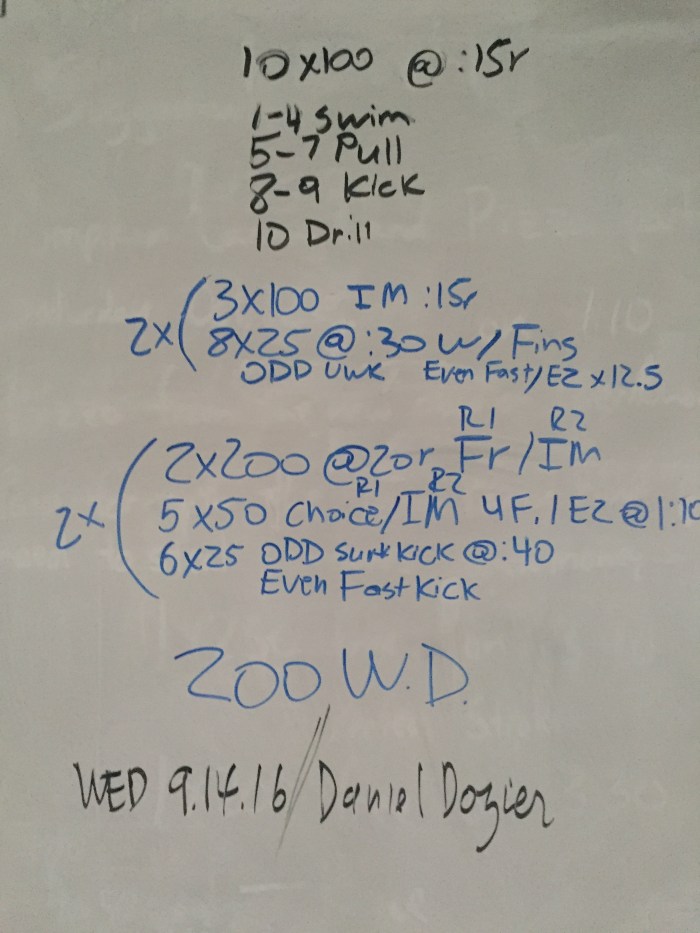 10x100 @ :15r
1-4 Swim
5-7 Pull
8-9 Kick
10 Drill
2x ( 3x100 IM :15r
8x25 @ :30 w/ Fins
ODD UWK Even Fast/EZ x 12.5
R1 R2
2x ( 2x200 @20r Fr/IM
R1 R2
5x50 Choice/IM 4F, 1EZ @ 1:10
6x25 ODD Surf Kick @ :40
Even Fast Kick
200 W.D.
WED 9.14.16 / Daniel Dozier